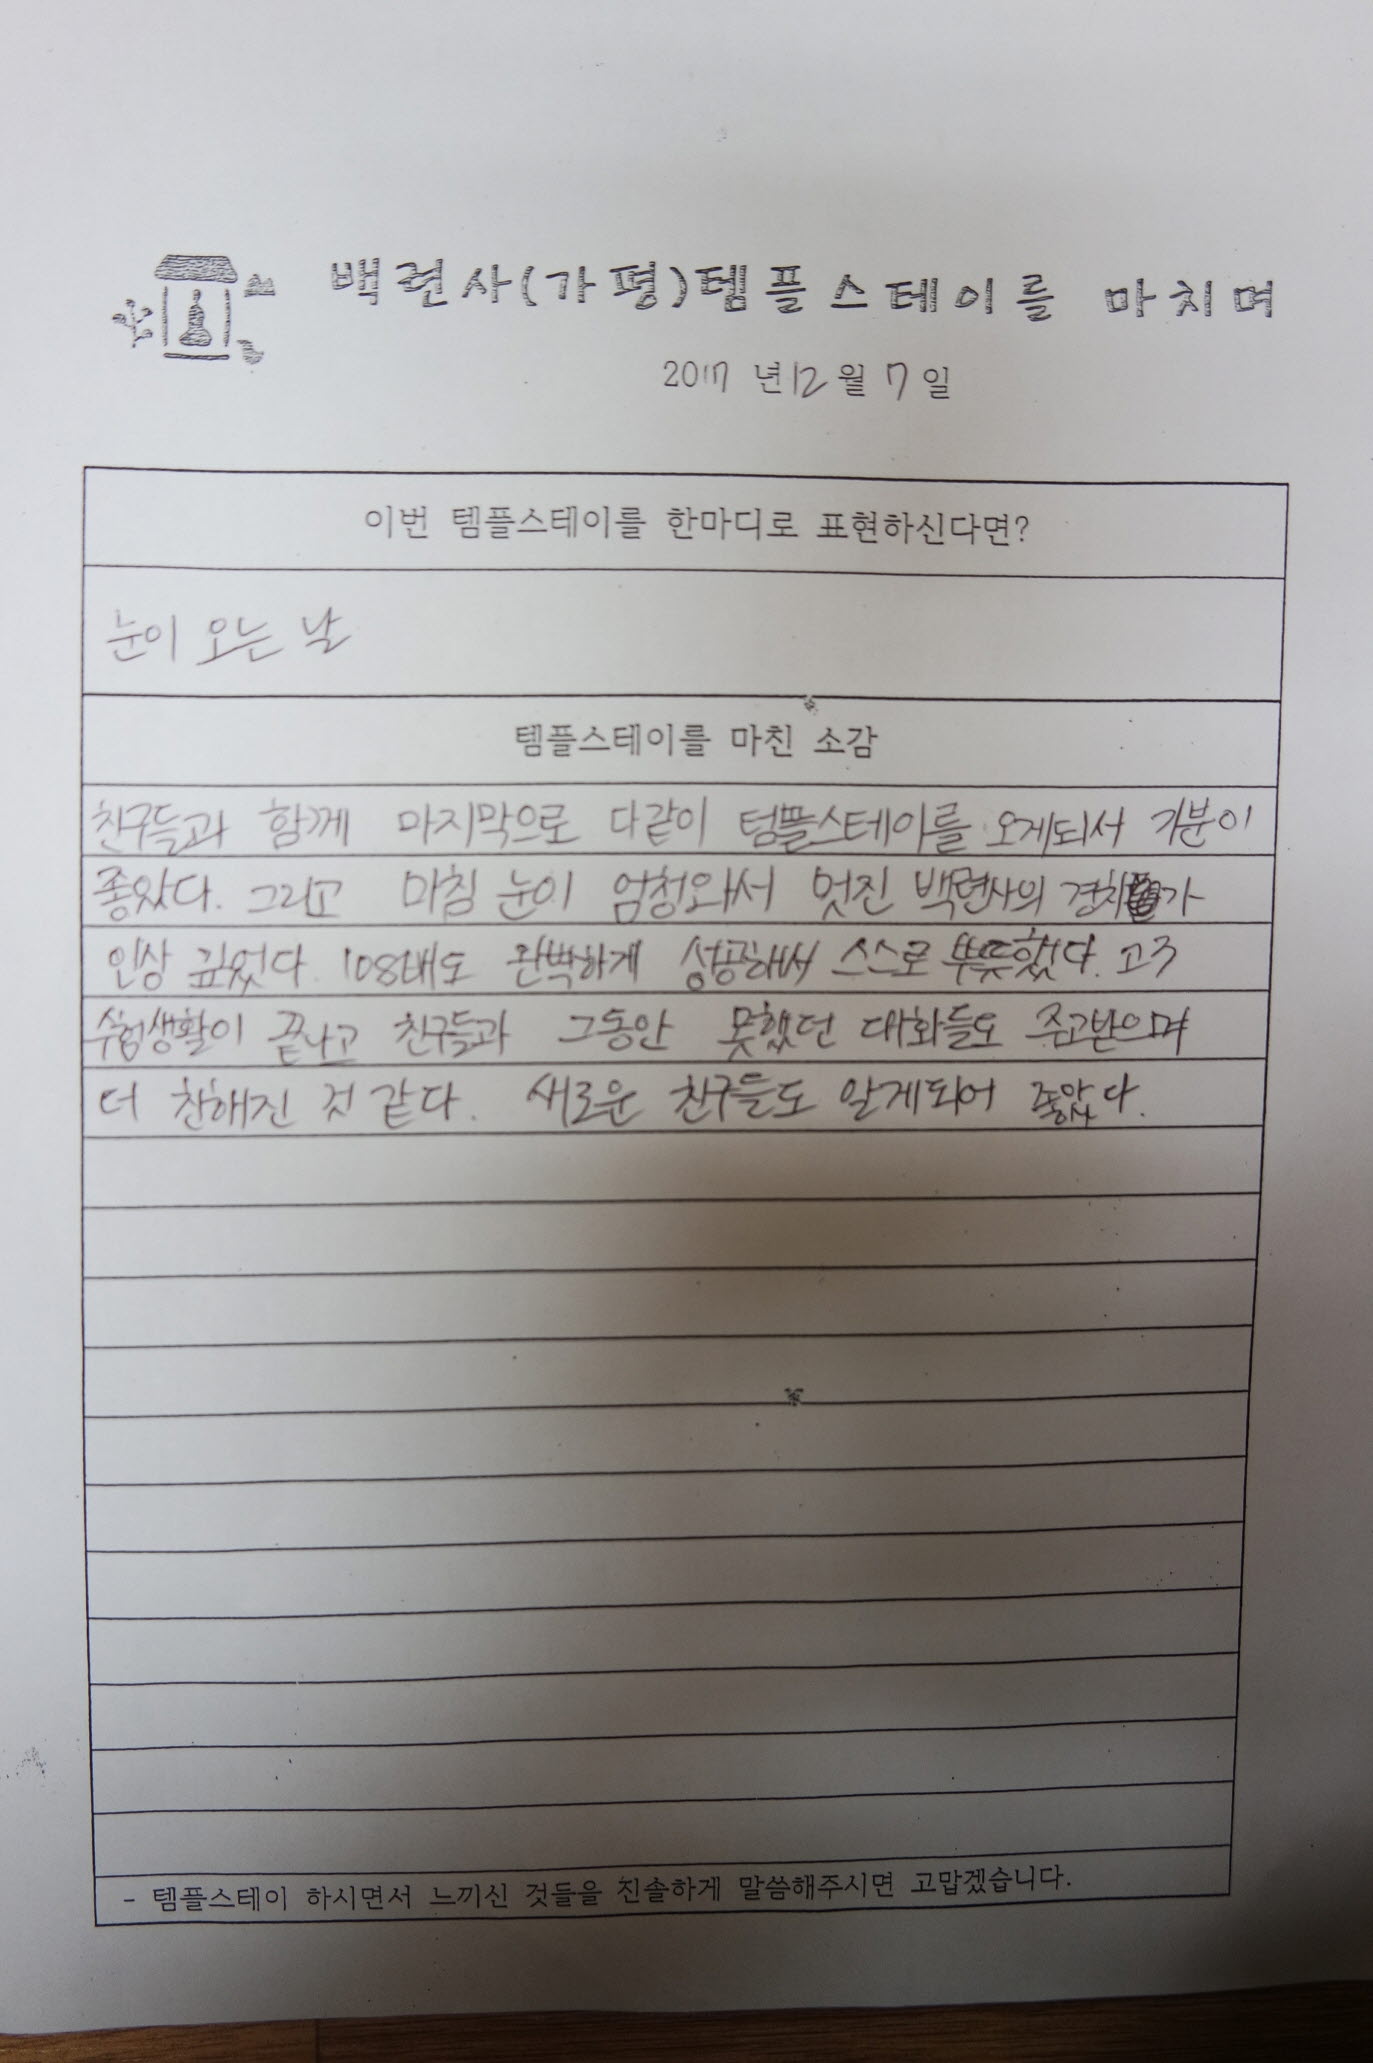 백련사(가평)템플스테이를 마치며
2017 년 12 월 7 일
이번 템플스테이를 한마디로 표현하신다면?
눈이 오는 날
템플스테이를 마친 소감
친구들과 함께 마지막으로 다같이 텀플스테이를 오게되서 기분이
좋았다. 그리고 마침 눈이 엄청와서 멋진 백련사의 경치가
인상 깊었다. 108배도 완벽하게 성공해서 스스로 뿌듯했다. 고3
수험생활이 끝나고 친구들과 그동안 못했던 대화들도 주고받으며
더 친해진 것 같다. 새로운 친구들도 알게되어 좋았다.
- 템플스테이 하시면서 느끼신 것들을 진솔하게 말씀해주시면 고맙겠습니다.